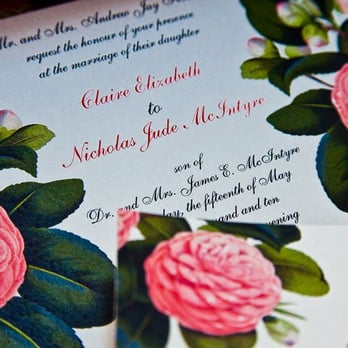 Mr. and Mrs. Andrew Jay
request the honour of your presence
at the marriage of their daughter
Claire Elizabeth
to
Nicholas Jude McIntyre
son of
Dr. and Mrs. James E. McIntyre
day, the fifteenth of May
and ten